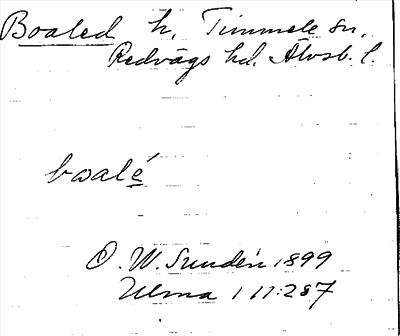 Boaled h, Timmele sn,
Redvägs hd. Älvsb. l.
boalé
O. W. Sundén 1899
Ulma 111:287